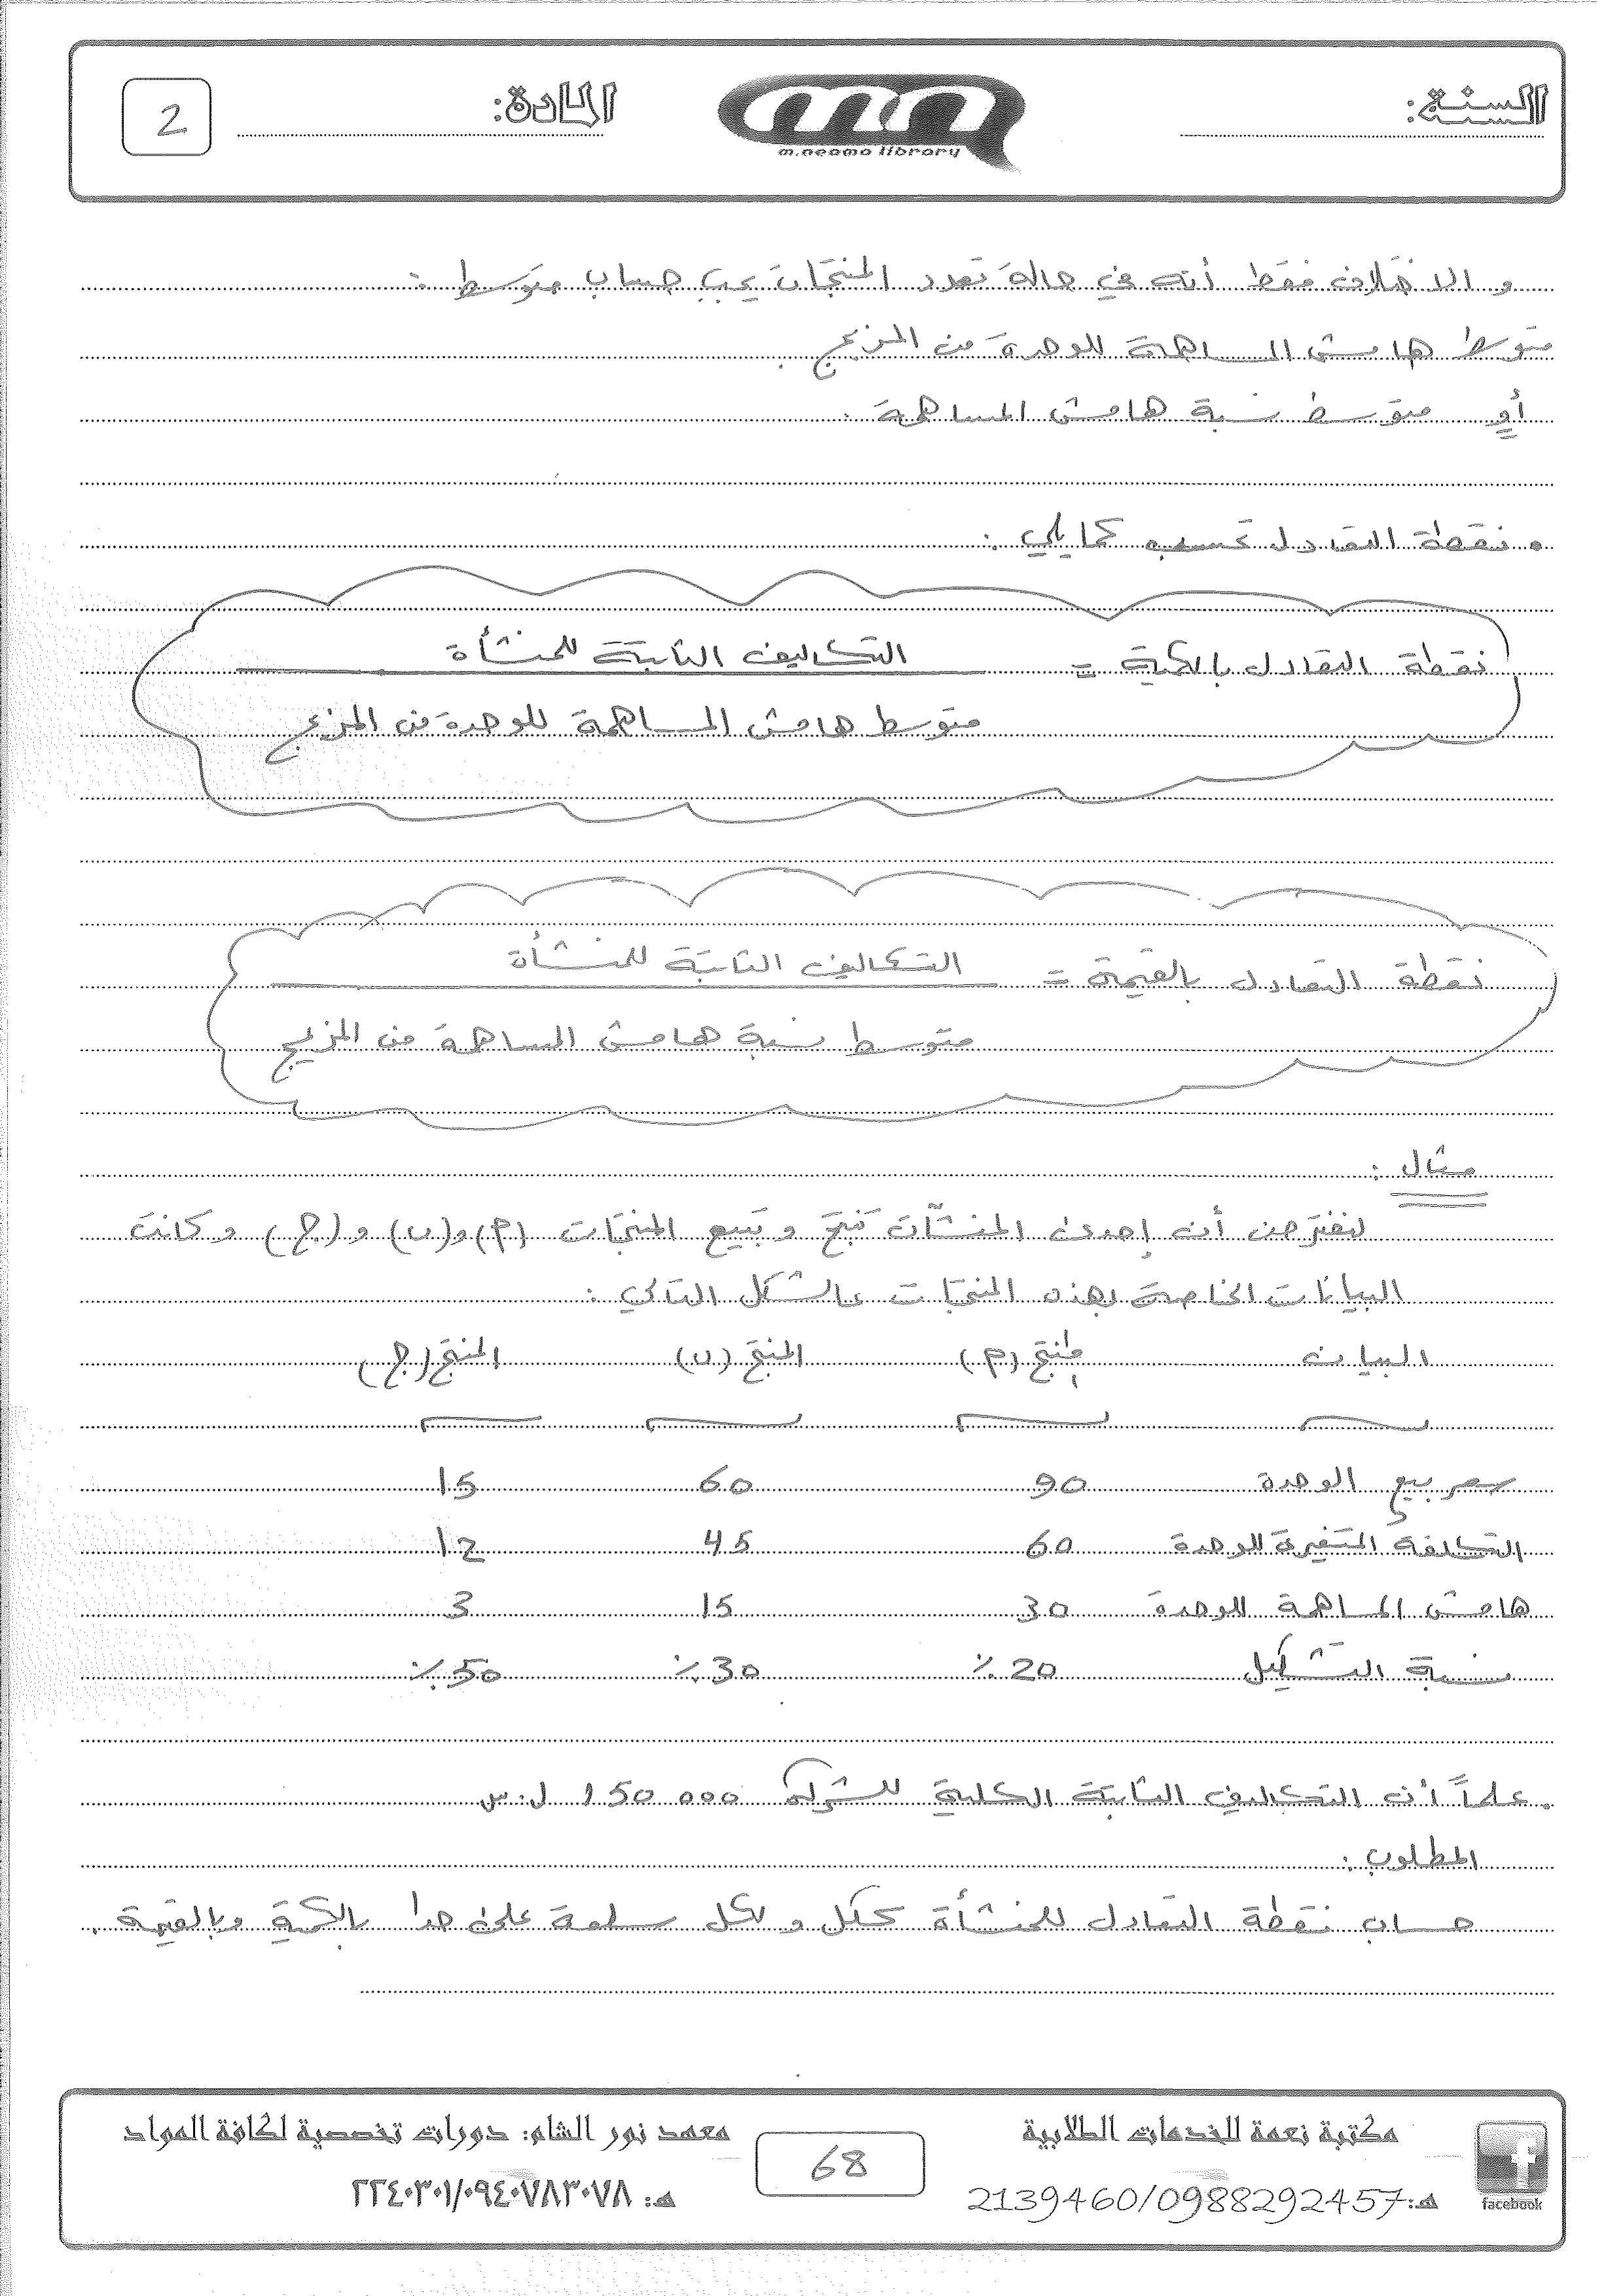 السنة:
m.neama library
المادة:
2
و الاختلاف فقط أنه في حالة تعدد المنتجات يجب حساب متوسط :
متوسط هامش المساهمة للوحدة من المزيج .
أو متوسط نسبة هامش المساهمة .
• نقطة التعادل تحسب كما يلي :
نقطة التعادل بالكمية = التكاليف الثابتة للمنشأة
متوسط هامش المساهمة للوحدة من المزيج
نقطة التعادل بالقيمة = التكاليف الثابتة للمنشأة
متوسط نسبة هامش المساهمة من المزيج
مثال :
لنفترض أن إحدى المنشآت تنتج و تبيع المنتجات (م) و (ب) و (ج) و كانت
البيانات الخاصة بهذه المنتجات كالشكل التالي :
البيان منتج (م) المنتج (ب) المنتج (ج)
سعر بيع الوحدة 90 60 15
التكلفة المتغيرة للوحدة 60 45 12
هامش المساهمة للوحدة 30 15 3
نسبة التشكيل 20 ٪ 30 ٪ 50 ٪
. علماً أن التكاليف الثابتة الكلية للشركة 150 000 ل.س
المطلوب :
حساب نقطة التعادل للمنشأة ككل و لكل سلعة على حدا بالكمية وبالقيمة .
facebook
مكتبة نعمة للخدمات الطلابية
هـ: 2139460/0988292457
68
معهد نور الشام: دورات تخصصية لكافة المواد
هـ: ٢٢٤٠٣٠١/٠٩٤٠٧٨٣٠٧٨